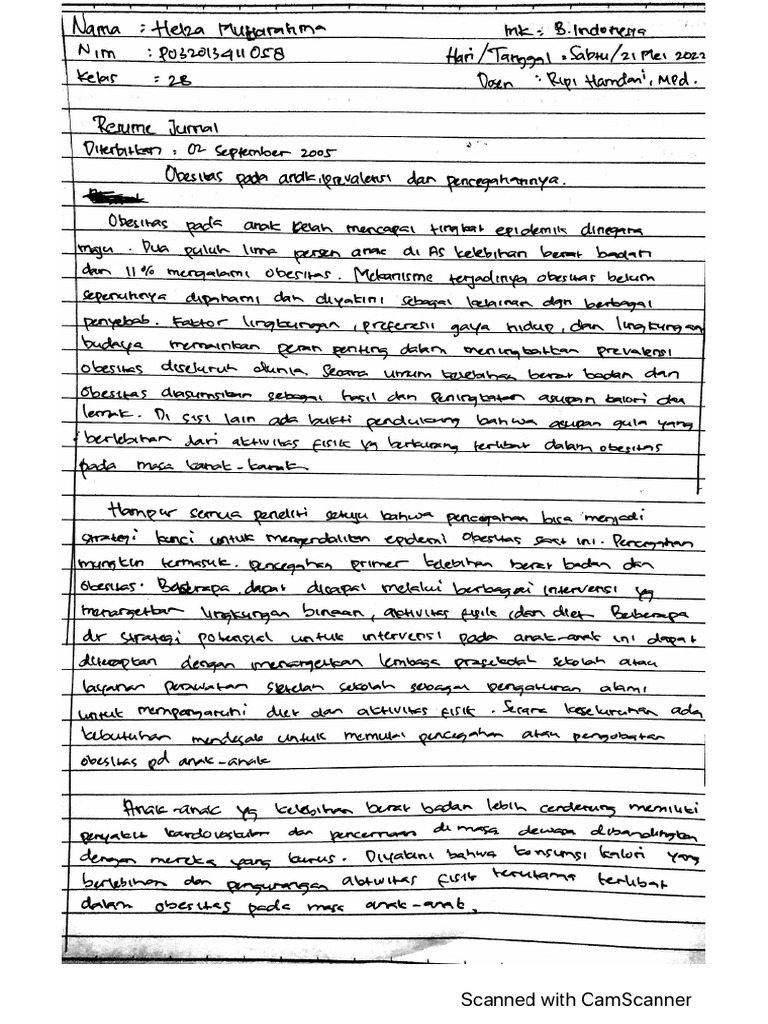 Nama : Helza Mutharahma
MK : B. Indonesia
Nim : P03201341 1058
Hari/Tanggal : Sabtu/21 Mei 2022
Kelas : 2B
Dosen : Ripi Hamdani, MPd.
Resume Jurnal
Diterbitkan : 02 September 2005
Obesitas pada anak, prevalensi dan pencegahannya.
Obesitas pada anak telah mencapai tingkat epidemik dinegara
maju. Dua puluh lima persen anak di AS kelebihan berat badan
dan 11% mengalami obesitas. Mekanisme terjadinya obesitas belum
sepenuhnya dipahami dan diyakini sebagai kelainan dgn berbagai
penyebab. Faktor lingkungan, preferensi gaya hidup, dan lingkungan
budaya memainkan peran penting dalam meningkatkan prevalensi
obesitas diseluruh dunia. Secara umum kelebihan berat badan dan
obesitas diasumsikan sebagai hasil dari peningkatan asupan kalori dan
lemak. Di sisi lain ada bukti pendukung bahwa asupan gula yang
berlebihan dari aktivitas fisik yg berkurang terlibat dalam obesitas
pada masa kanak-kanak
Hampir semua peneliti setuju bahwa pencegahan bisa menjadi
strategi kunci untuk mengendalikan epidemi obesitas saat ini. Pencegahan
mungkin termasuk. pencegahan primer kelebihan berat badan dan
obesitas. Beberapa dapat dicapai melalui berbagai intervensi yg
menargetkan lingkungan binaan, aktivitas fisik, dan diet. Beberapa
dr strategi potensial untuk intervensi pada anak-anak ini dapat
diterapkan dengan menargetkan lembaga prasekolah sekolah atau
layanan perawatan setelah sekolah sebagai pengaturan alami
untuk mempengaruhi diet dan aktivitas fisik. Secara keseluruhan ada
kebutuhan mendesak untuk memulai pencegahan atau pengobatan
obesitas pd anak-anak
Anak-anak yg kelebihan berat badan lebih cenderung memiliki
penyakit kardiovaskular dan pencernaan di masa dewasa dibandingkan
dengan mereka yang kurus. Diyakini bahwa konsumsi kalori yang
berlebihan dan pengurangan aktivitas fisik terutama terlibat
dalam obesitas pada masa anak-anak.
Scanned with CamScanner